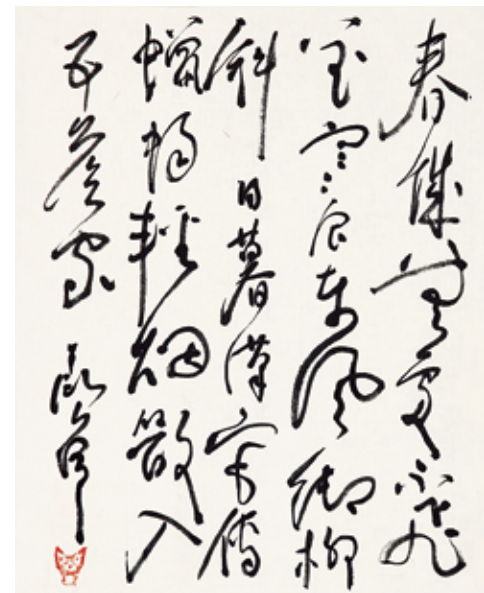 春城無處不飛
花寒食東風御柳
斜日暮漢宮傳
蠟燭輕烟散入
五侯家